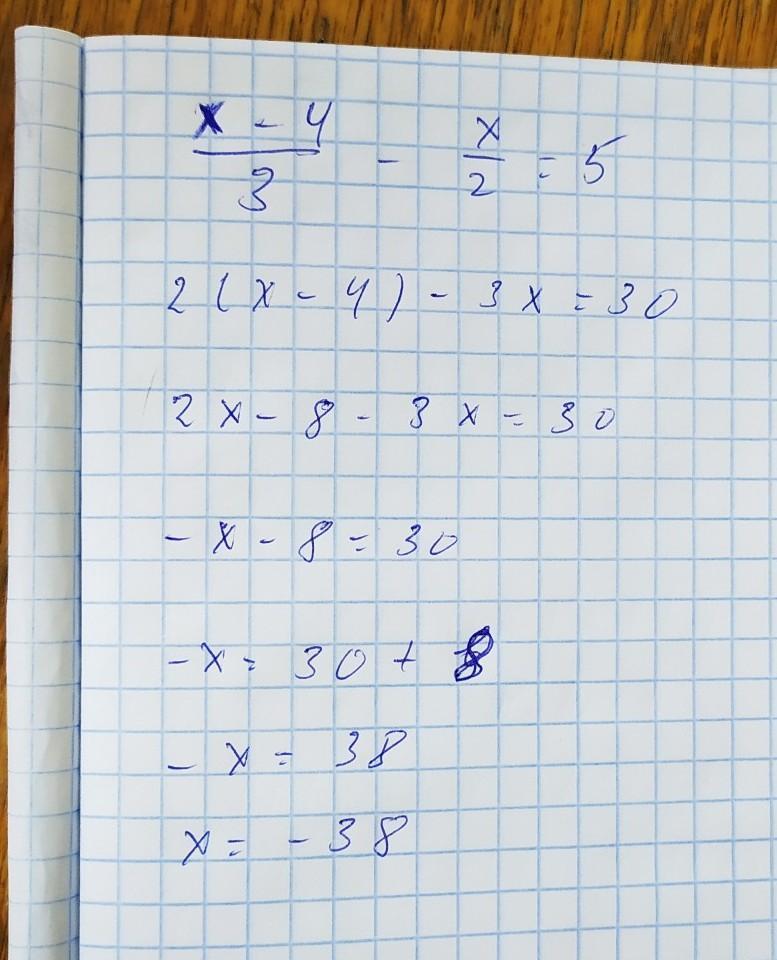 x - 4 / 3 - x / 2 = 5
2 ( x - 4 ) - 3 x = 30
2 x - 8 - 3 x = 30
- x - 8 = 30
- x = 30 + 8
- x = 38
x = - 38